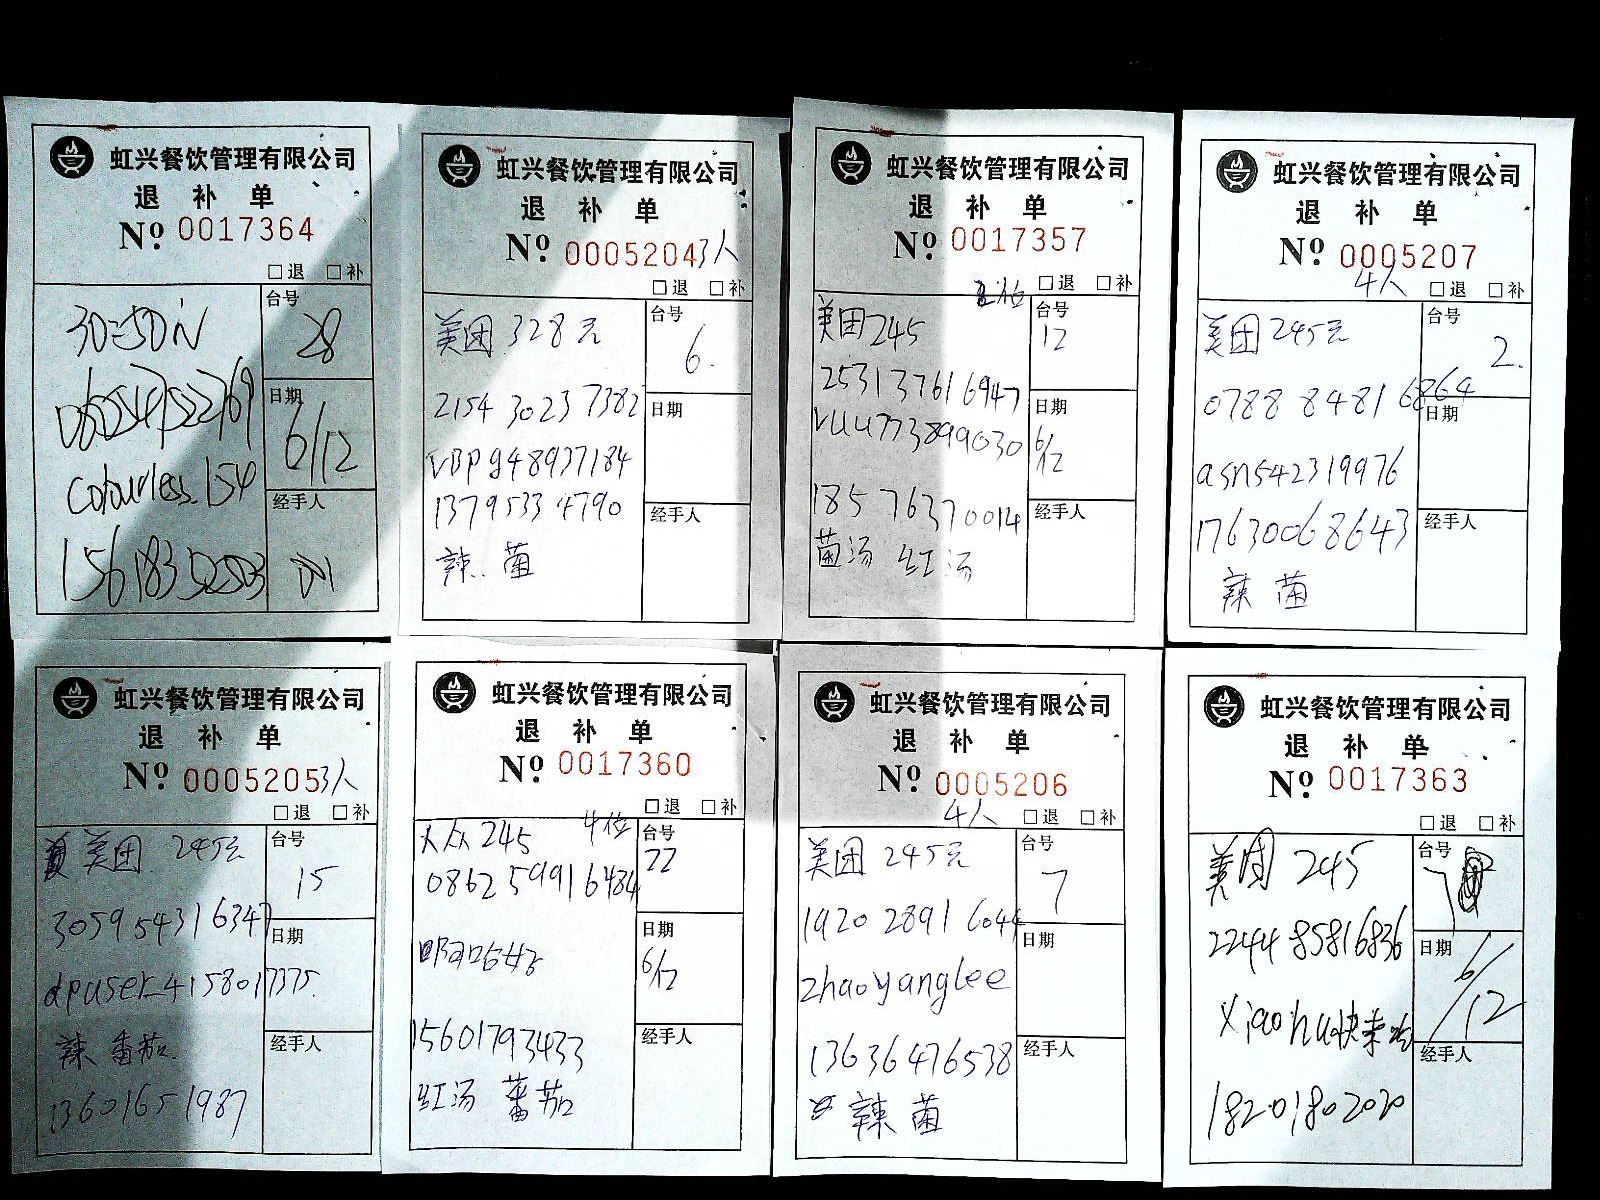 虹兴餐饮管理有限公司
退 补 单
№ 0017364
□退 □补
台号
28
日期
6/12
Colourless.154
15618352503
经手人
虹兴餐饮管理有限公司
退 补 单
№ 0005204 3人
□退 □补
美团 328元
台号
6.
2154 3023 7382
日期
VBPg48937184
13795334790
经手人
辣.. 菌
虹兴餐饮管理有限公司
退 补 单
№ 0017357
□退 □补
美团245
台号
12
253137616947
日期
6/12
VUU773899030
18576370014
经手人
菌汤 红汤
虹兴餐饮管理有限公司
退 补 单
№ 0005207
4人 □退 □补
美团245元
台号
2.
0788 8481 6864
日期
asn542319976
17630068643
经手人
辣 菌
虹兴餐饮管理有限公司
退 补 单
№ 0005205 3人
□退 □补
美团 245元
台号
15
3059 5431 6347
日期
dpuser_4158017375.
辣 番茄.
经手人
13601651987
虹兴餐饮管理有限公司
退 补 单
№ 0017360
□退 □补
大众245 4位
台号
22
0862 5991 6484
日期
6/12
15601793433
经手人
红汤 蕃茄
虹兴餐饮管理有限公司
退 补 单
№ 0005206
4人 □退 □补
美团 245元
台号
7
1920 2891 6044
日期
zhaoyanglee
13636476538
经手人
辣 菌
虹兴餐饮管理有限公司
退 补 单
№ 0017363
□退 □补
美团 245
台号
7
2244 85816836
日期
6/12
xiaohu快来
经手人
18201802020